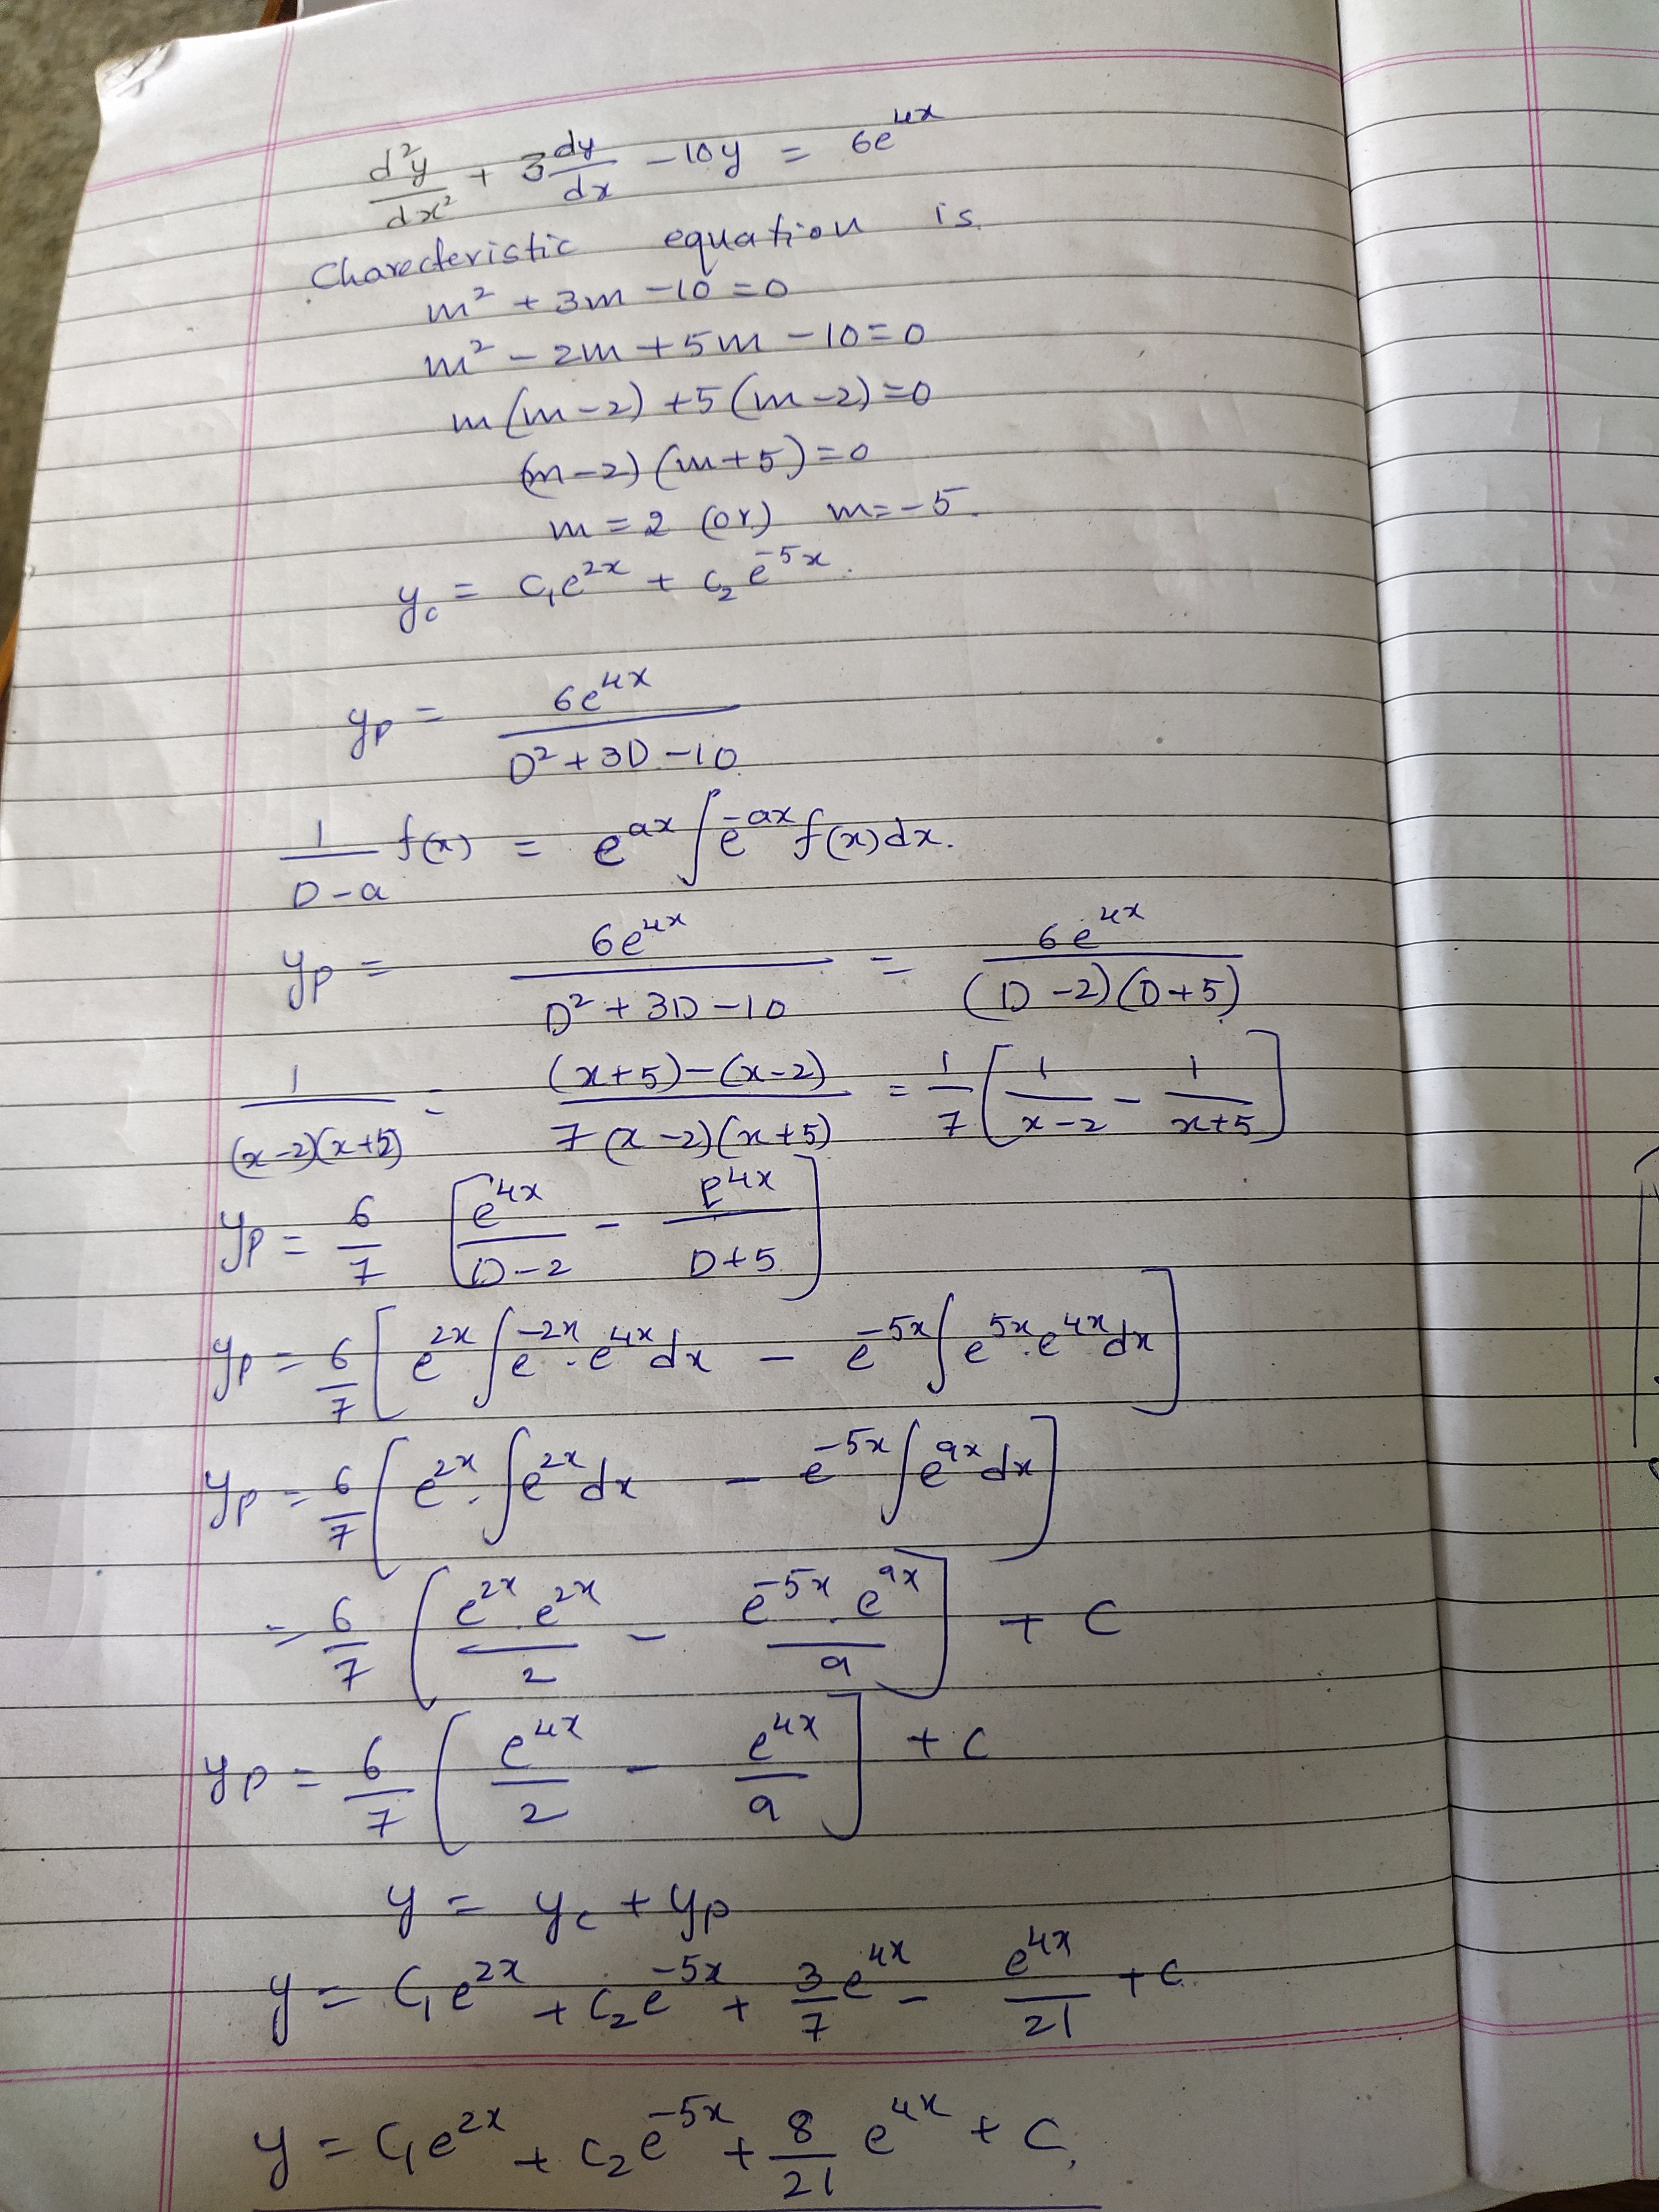 d²y/dx² + 3 dy/dx - 10y = 6e^4x
Charecteristic equation is.
m² + 3m - 10 = 0
m² - 2m + 5m - 10 = 0
m(m-2) + 5(m-2) = 0
(m-2)(m+5) = 0
m = 2 (or) m = -5.
y_c = C₁e^2x + C₂e^-5x.
y_p = 6e^4x / D² + 3D - 10
1/D-a f(x) = e^ax ∫ e^-ax f(x) dx.
y_p = 6e^4x / D² + 3D - 10 = 6e^4x / (D-2)(D+5)
1/(x-2)(x+5) = (x+5)-(x-2) / 7(x-2)(x+5) = 1/7 [1/x-2 - 1/x+5]
y_p = 6/7 [e^4x/D-2 - e^4x/D+5]
y_p = 6/7 [e^2x ∫ e^-2x . e^4x dx - e^-5x ∫ e^5x . e^4x dx]
y_p = 6/7 [e^2x . ∫ e^2x dx - e^-5x ∫ e^9x dx]
= 6/7 [e^2x . e^2x / 2 - e^-5x . e^9x / 9] + C
y_p = 6/7 [e^4x/2 - e^4x/9] + C
y = y_c + y_p
y = C₁e^2x + C₂e^-5x + 3/7 e^4x - e^4x/21 + C.
y = C₁e^2x + C₂e^-5x + 8/21 e^4x + C,